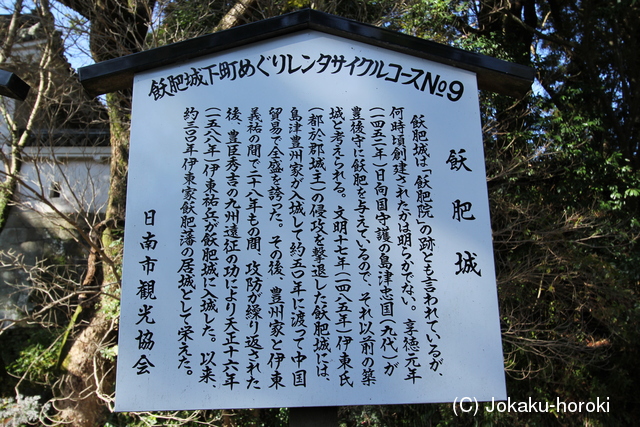 飫肥城下町めぐりレンタサイクルコースNo9
飫肥城
飫肥城は「飫肥院」の跡とも言われているが、
何時頃創建されたかは明らかでない。享徳元年
(一四五二年)日向国守護の島津忠国(九代)が
豊後守に飫肥を与えているので、それ以前の築
城と考えられる。文明十七年(一四八五年)伊東氏
(都於郡城主)の侵攻を撃退した飫肥城には、
島津豊州家が入城して約五〇年に渡って中国
貿易で全盛を誇った。その後、豊州家と伊東
義祐の間で二十八年もの間、攻防が繰り返された
後、豊臣秀吉の九州遠征の功により天正十六年
(一五八八年)伊東祐兵が飫肥城に入城した。以来、
約二八〇年伊東家飫肥藩の居城として栄えた。
日南市観光協会
(C) Jokaku-horoki